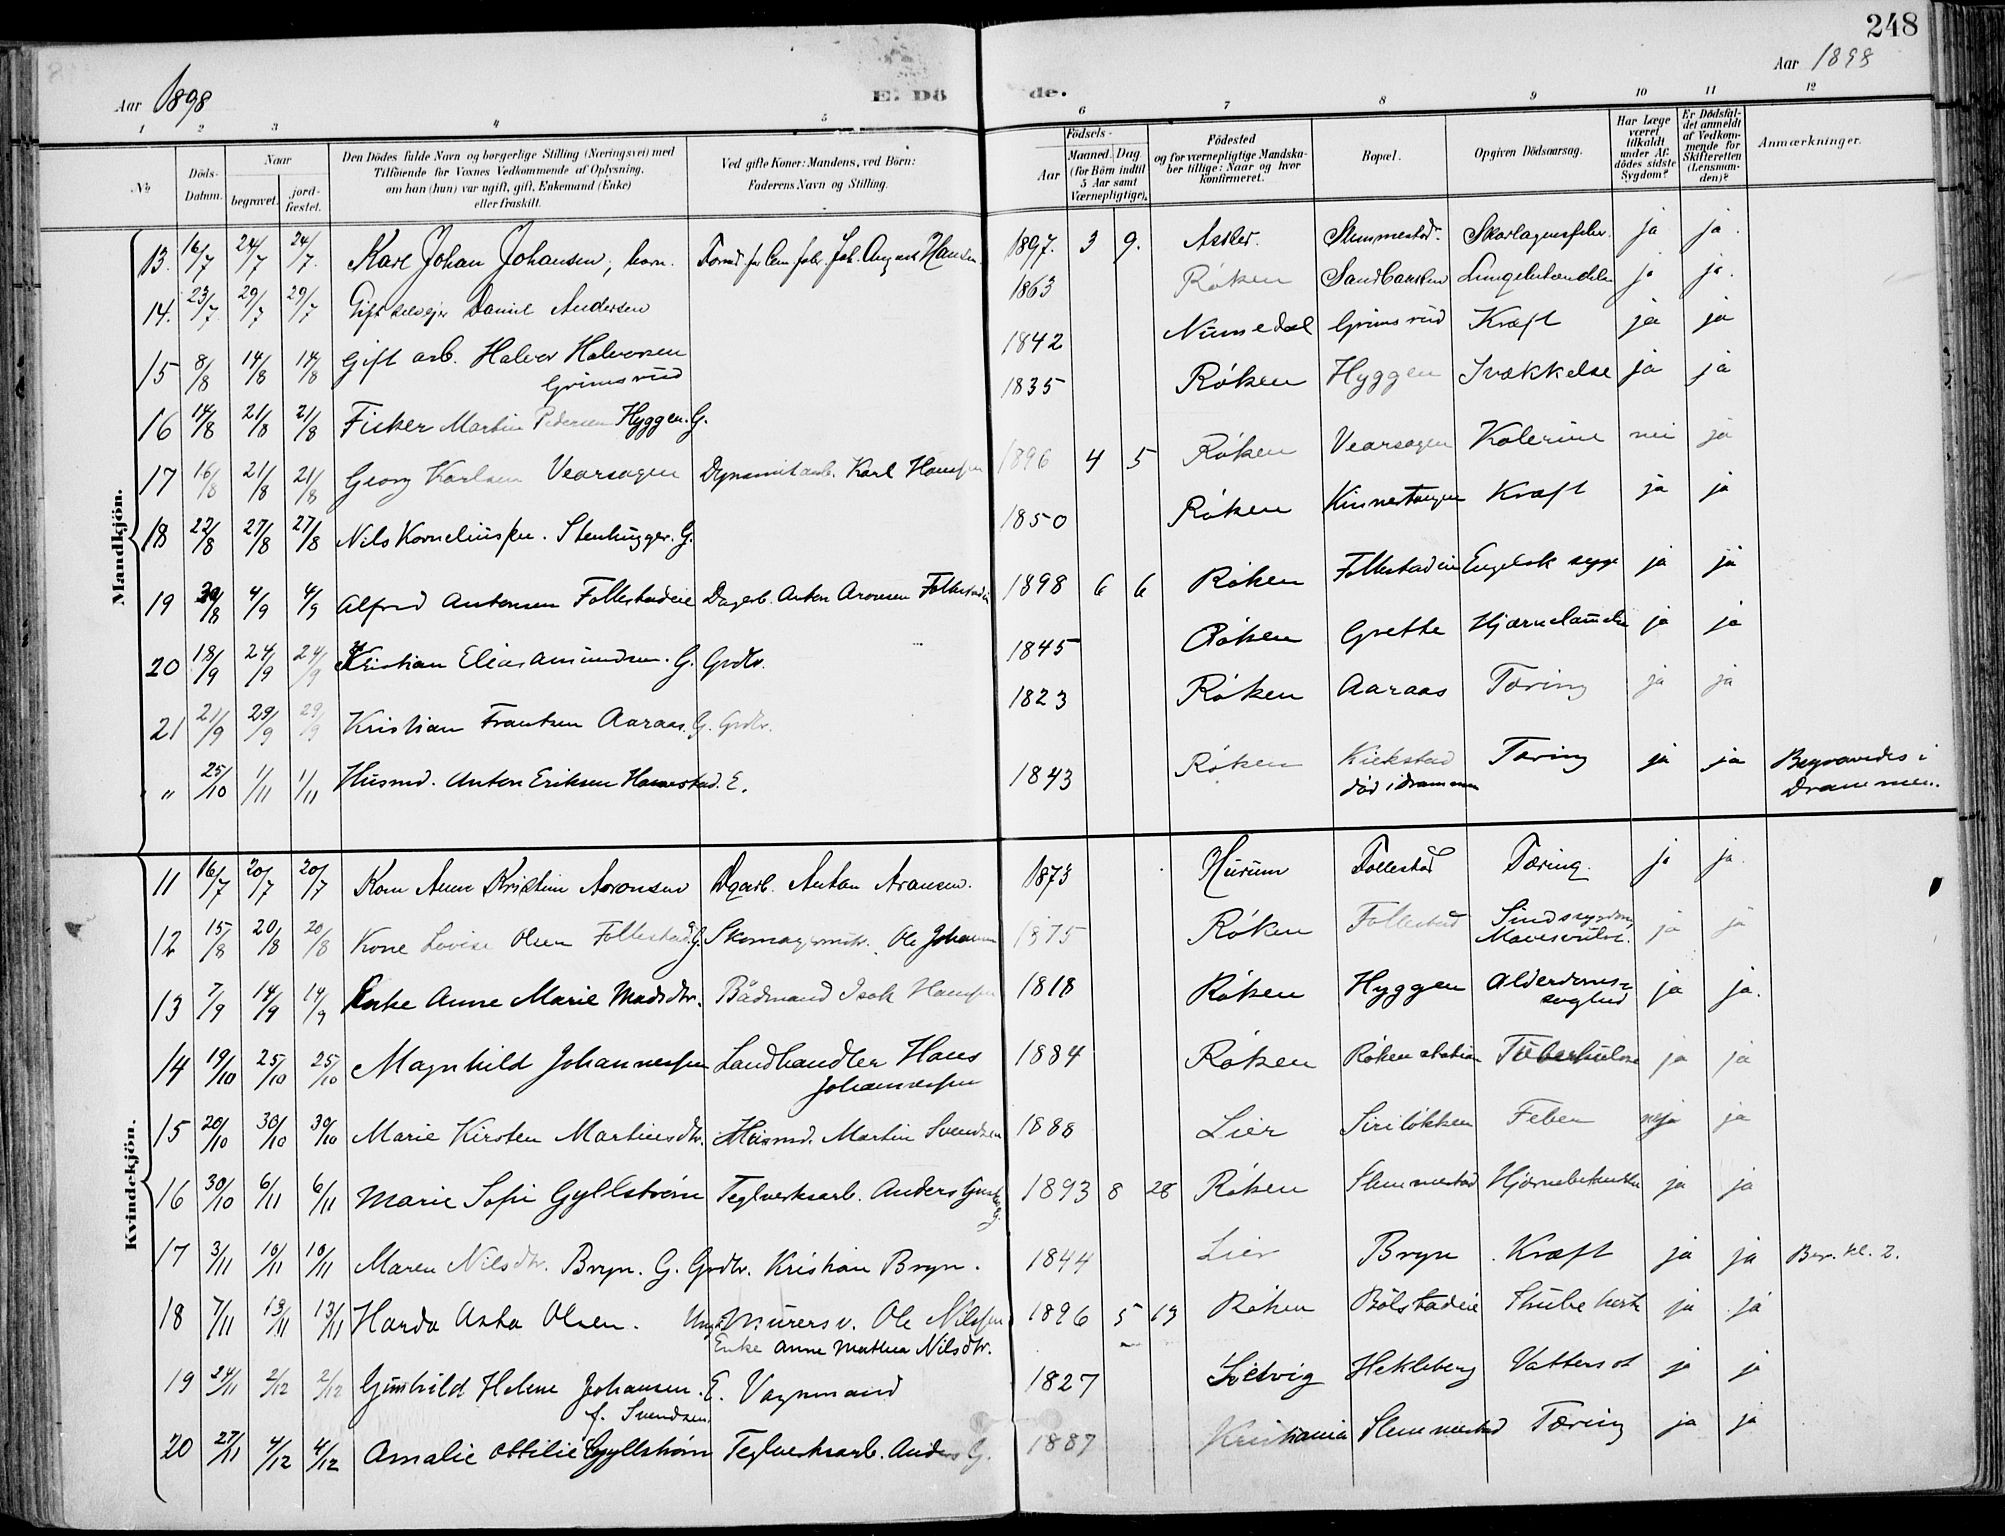 248
Aar 1898
Aar 1898
E. Dö de.
1 2 3 4 5 6 7 8 9 10 11 12
No
Döds-Datum.
Naar
begravet.
jord-fæstet.
Den Dödes fulde Navn og borgerlige Stilling (Næringsvei) med
Tilföiende for Voxnes Vedkommende af Oplysning,
om han (hun) var ugift, gift, Enkemand (Enke)
eller fraskilt.
Ved gifte Koner: Mandens, ved Börn:
Faderens Navn og Stilling.
Födsels-
Aar
Maaned. Dag
(for Börn indtil
5 Aar samt
Værnepligtige).
Födested
og for værnepligtige Mandska-
ber tillige: Naar og hvor
konfirmeret.
Bopæl.
Opgiven Dödsaarsag.
Har Læge
været
tilkaldt
under Af-
dödes sidste
Sygdom?
Er Dödsfal-
det anmeldt
af Vedkom-
mende for
Skifteretten
(Lensman-
den)?
Anmærkninger.
Mandkjön.
13. 16/7 24/7 24/7. Karl Johan Johansen, barn. Joh. August Hansen. 1897. 3 9. Asker. Slemmestad. Skarlagensfeber. ja ja.
14. 23/7 29/7 29/7 Gift selvejer Daniel Andersen 1863 Röken Lungebetændelse ja ja.
15 8/8 14/8 14/8 Gift arb. Halvor Halvorsen
Grimsrud 1842 Numedal Grimsrud Kræft ja ja
16 14/8 21/8 21/8 Fisker Martin Pedersen Hyggen. G. 1835 Röken Hyggen Svækkelse ja ja
17 16/8 21/8 21/8 Georg Karlsen Vearsagen Dynamitarb. Karl Hansen 1896 4 5 Röken Vearsagen Kolerine nei ja
18 22/8 27/8 27/8 Nils Korneliussen. Stenhugger. G. 1850 Röken Kinnertangen Kræft ja ja
19 30/8 4/9 4/9 Alfred Antonsen Follestadeie Dagarb. Anton Aronsen Follestadeie 1898 6 6 Röken Follestadeie Engelsk syge ja ja
20 18/9 24/9 24/9 Kristian Elias Amundsen. G. Grdbr. 1845 Röken Grette ja ja
21 21/9 29/9 29/9 Kristian Frantsen Aaraas. G. Grdbr. 1823 Röken Aaraas Tæring ja ja
" 25/10 1/11 1/11 Husmd. Anton Eriksen. E. 1843 Röken Kiekstad
död i Drammen Tæring ja ja Begravedes i
Drammen.
Kvindekjön.
11 16/7 20/7 20/7 Kone Anne Kristine Aronsen Dgarb. Anton Aronsen. 1873 Hurum Follestad Tæring. ja ja.
12 15/8 20/8 20/8 Kone Lovise Olsen Follestad G. Skomagermstr. Ole Johansen 1875 Röken Follestad Sindssygdom
Mavesvulst. ja ja
13 7/9 14/9 14/9 Enke Anne Marie Madsdtr. Baadmand Isak Hansen 1818 Röken Hyggen Alderdoms-
svaghed ja ja.
14 19/10 25/10 25/10 Magnhild Johannessen Landhandler Hans
Johannessen 1884 Röken Röken station Tuberkulose ja ja
15 20/10 30/10 30/10 Marie Kirsten Martinsdtr. Husmd. Martin Svendsen 1888 Lier Siriløkken Feber ja ja
16 30/10 6/11 6/11 Marie Sofie Gyllström Teglverksarb. Anders 1893 8 28 Röken Slemmestad ja ja
17 3/11 10/11 10/11 Maren Nilsdtr. Bryn. G. Grdbr. Kristian Bryn. 1844 Lier Bryn Kræft ja ja Bægr. kl. 2.
18 7/11 13/11 13/11 Harda Asta Olsen. Murersv. Ole Nilsen
Enke Anne Mathea Nilsdtr. 1896 5 19 Röken Bölstadeie Strubehoste ja ja
19 24/11 2/12 2/12 Gunhild Helene Johansen. E. Vognmand
f. Svendsen 1827 Hekleberg Vattersot ja ja
20 27/11 4/12 4/12 Amalie Ottilie Gyllström Teglverksarb. Anders G. 1887 Kristiania Slemmestad Tæring ja ja